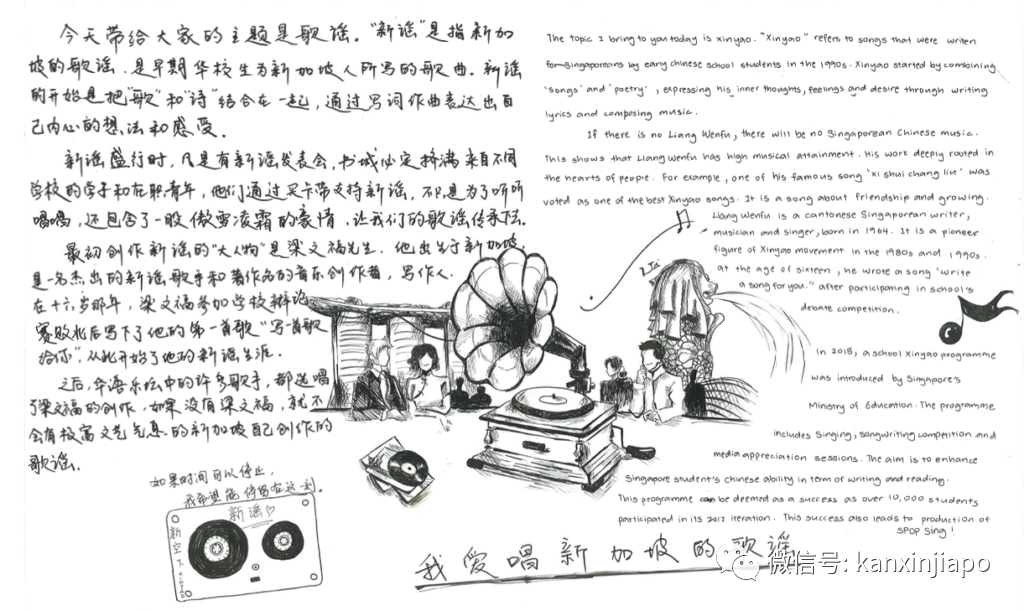 今天带给大家的主题是歌谣。“新谣”是指新加
坡的歌谣，是早期华校生为新加坡人所写的歌曲。新谣
的开始是把“歌”和“诗”结合在一起，通过写词作曲表达出自
己内心的想法和感受。
新谣盛行时，凡是有新谣发表会，书城必定挤满来自不同
学校的学子和在职青年，他们通过买卡带支持新谣，不只是为了听听
唱唱，还包含了一股傲雪凌霜的豪情，让我们的歌谣传承下去。
最初创作新谣的“大人物”是梁文福先生。他出生于新加坡，
是一名杰出的新谣歌手和著作名的音乐创作者，写作人.
在十六岁那年，梁文福参加学校辩论
赛败北后写下了他的第一首歌“写一首歌
给你”，从此开始了他的新谣生涯.
之后，华语乐坛中的许多歌手，都选唱
了梁文福的创作，如果没有梁文福，就不
会有较富文艺气息的新加坡自己创作的
歌谣.
如果时间可以停止，
我希望能停留在这一刻。
新谣♡
新空下
The topic I bring to you today is xinyao. "Xinyao" refers to songs that were writen
for Singaporeans by eary chinese school students in the 1990s. Xinyao started by combining
'songs' and 'poetry', expressing his inner thoughts, feelings and desire through writing
lyrics and composing music.
If there is no Liang Wenfu, there will be no Singaporean Chinese music.
This shows that Liang Wenfu has high musical attainment. His work deeply rooted in
the hearts of people. For example, one of his famous song 'xi shui chang liu' was
voted as one of the best Xinyao songs. It is a song about friendship and growing.
Liang Wenfu is a cantonese Singaporean writer,
musician and singer, born in 1964. It is a pioneer
figure of Xinyao movement in the 1980s and 1990s.
at the age of sixteen, he wrote a song 'write
a song for you." after participating in school's
debate competition.
In 2015, a school Xinyao programme
was introduced by Singapore's
Ministry of Education. The programme
includes Singing, songwriting competition and
media appreciation sessions. The aim is to enhance
Singapore student's chinese ability in term of writing and reading.
This programme can be deemed as a success as over 10,000 students
participated in its 2017 iteration. This success also leads to production of
SPOP Sing!
我爱唱新加坡的歌谣
微信号: kanxinjiapo